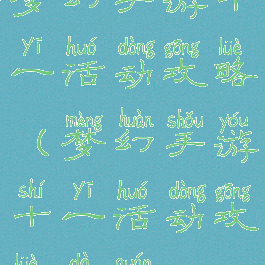 梦幻手游十
yī huó dòng gōng lüè
一活动攻略
mèng huàn shǒu yóu
（梦幻手游
shí yī huó dòng gōng
十一活动攻
lüè dà quán